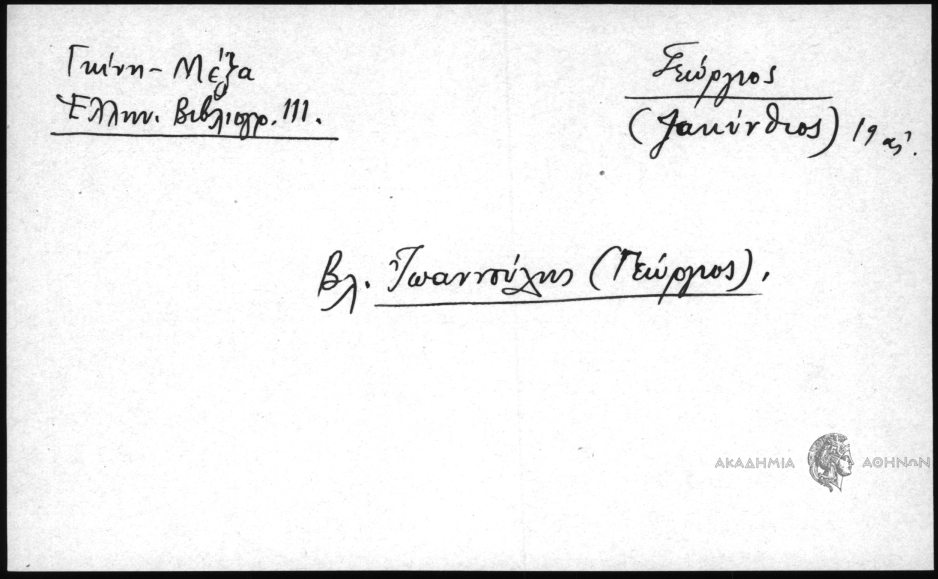 Γκίνη - Μέξα
Ἑλλην. Βιβλιογρ. III.
Γεώργιος
(Ζακύνθιος) 19 αἰ.
Βλ. Ἰωαννούλης (Γεώργιος).
ΑΚΑΔΗΜΙΑ ΑΘΗΝΩΝ